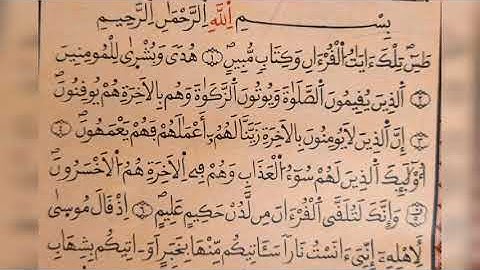 بِسْمِ اِ۬للَّهِ اِ۬لرَّحْمَٰنِ اِ۬لرَّحِيمِ
طَسِٓۖ تِلْكَ ءَايَٰتُ اُ۬لْقُرْءَانِ وَكِتَابٖ مُّبِينٍۖ ۝١ هُدىٗ وَبُشْر۪يٰ لِلْمُومِنِينَ
۝٢ اَ۬لذِينَ يُقِيمُونَ اَ۬لصَّلَوٰةَ وَيُوتُونَ اَ۬لزَّكَوٰةَ وَهُم بِالَاخِرَةِ هُمْ يُوقِنُونَۖ
۝٣ إِنَّ اَ۬لذِينَ لَا يُومِنُونَ بِالَاخِرَةِ زَيَّنَّا لَهُمُۥٓ أَعْمَٰلَهُمْ فَهُمْ يَعْمَهُونَۖ ۝٤
أُوْلَٰٓئِكَ اَ۬لذِينَ لَهُمْ سُوٓءُ اُ۬لْعَذَابِ وَهُمْ فِے اِ۬لَاخِرَةِ هُمُ اُ۬لَاخْسَرُونَۖ
۝٥ وَإِنَّكَ لَتُلَقَّى اَ۬لْقُرْءَانَ مِن لَّدُنْ حَكِيمٍ عَلِيمٍۖ ۝٦ اِذْ قَالَ مُوس۪يٰ
لِأَهْلِهِۦٓ إِنِّيَ ءَانَسْتُ نَاراٗ سَـَٔاتِيكُم مِّنْهَا بِخَبَرٍ اَوَ اٰتِيكُم بِشِهَابِ